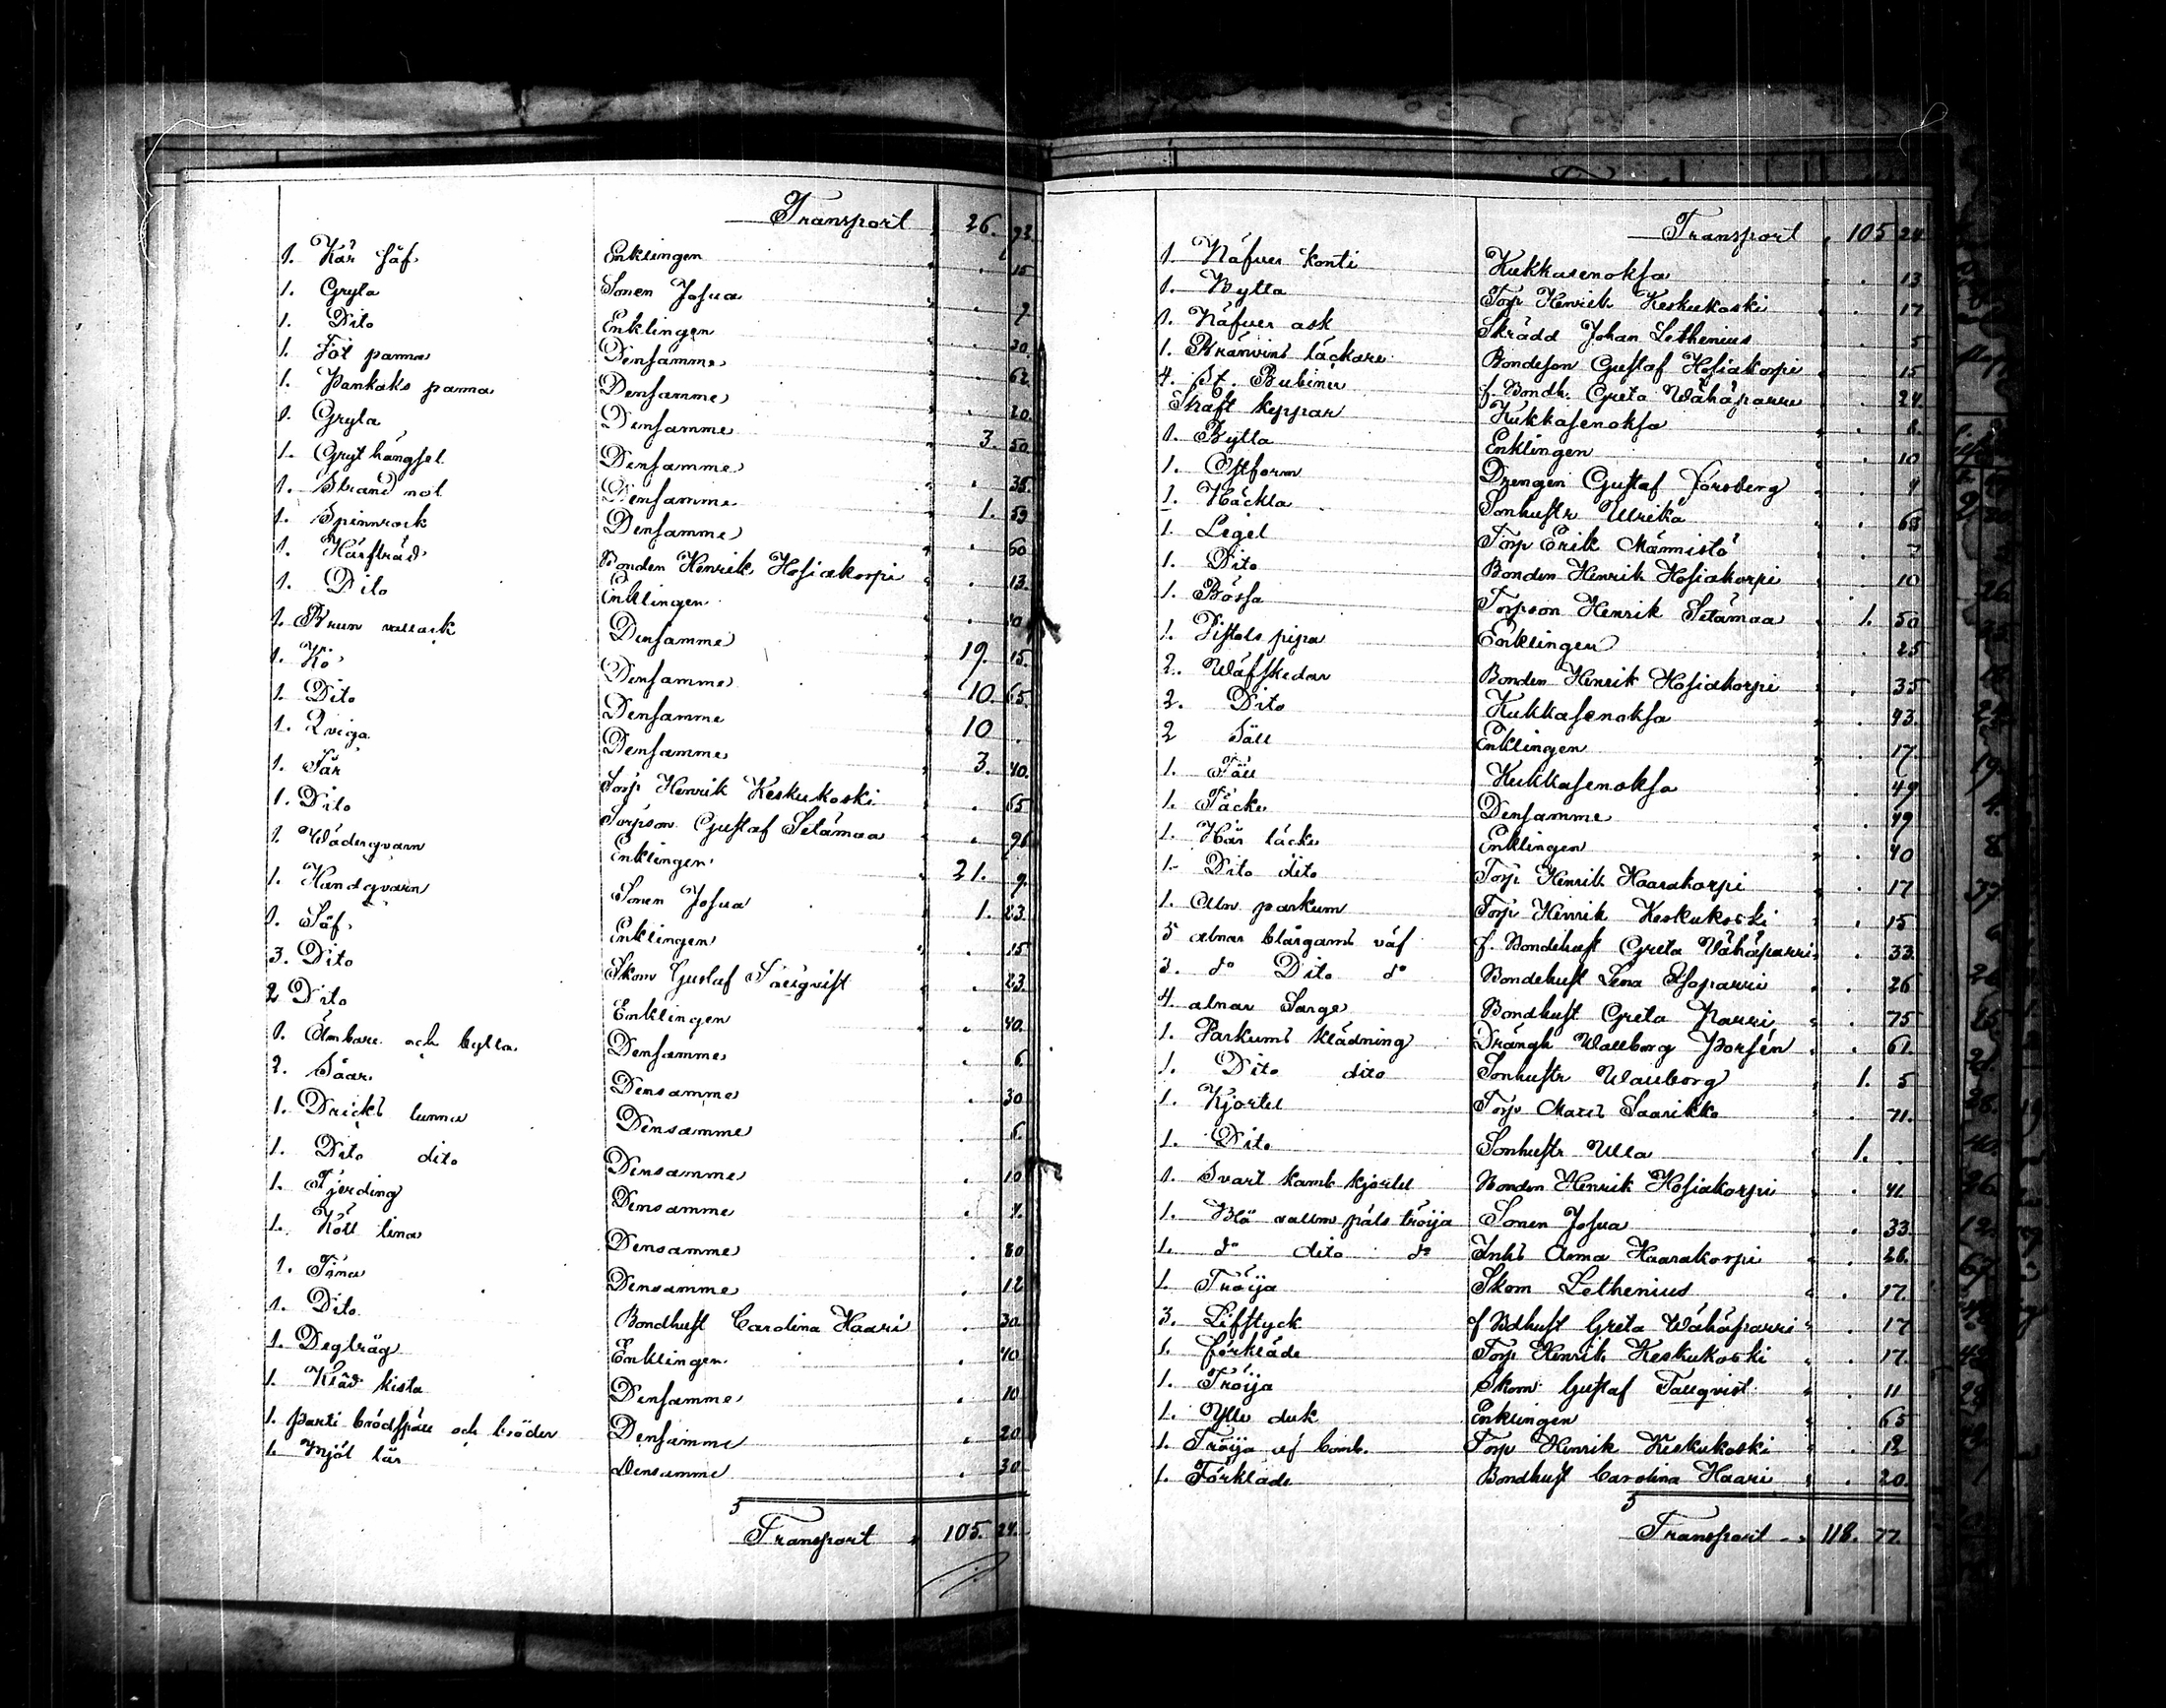 Transport 26. 92.
1. Kar Såf Enklingen . 15
1. Gryta Sonen Josua . 7
1. Dito Enklingen . 20
1. Föt panna Densamme . 62.
1. Pankaks panna Densamme . 20.
1. Gryta Densamme 3. 50
1. Gryt hängsel Densamme . 35.
1. Strand not Densamme 1. 59
1. Spinnrock Densamme . 60
1. Härfträd Bonden Henrik Hosiakorpi . 13.
1. Dito Enklingen . 10
1. Brun vallack Densamme 19. 15.
1. Ko Densamme 10. 65.
1. Dito Densamme 10 .
1. Qviga Densamme 3. 40.
1. Får Torp Henrik Keskukoski . 65
1. Dito Torpson Gustaf Setämaa . 96
1. Wäderqvarn Enklingen 21. 9.
1. Handqvarn Sonen Josua 1. 23.
1. Såf Enklingen . 15
3. Dito Skom Gustaf Tallqvist . 23.
2 Dito Enklingen . 40.
1. Ämbare och bytta Densamme . 6.
2. Såar Densamme . 30
1. Dricks tunna Densamme . 5.
1. Dito dito Densamme . 10
1. Fjerding Densamme . 4.
1. Kött tina Densamme . 80
1. Tina Densamme . 12
1. Dito Bondhust Carolina Haari . 30.
1. Degtråg Enklingen . 40
1. Kläd kista Densamme . 10
1. Parti brödspade och bröder Densamme . 20
1. Mjöl lår Densamme . 30
Transport 105. 24.
Transport 105 24
1 Näfver konti Kukkasenoksa . 13
1. Bytta Torp Henrik Keskukoski . 17
1. Näfver ask Skrädd Johan Lethenius . 5
1. Bränvins läckare Bondeson Gustaf Hosiakorpi . 15
4. st. Bubiner f. Bondh. Greta Wähäparri . 24.
Skaft keppar Kukkasenoksa . 6.
1. Bytta Enklingen . 10
1. Ostform Drengen Gustaf Forsberg . 4
1. Häckla Sonhustr Ulrika . 63
1. Legel Torp Erik Männistö . 7
1. Dito Bonden Henrik Hosiakorpi . 10
1. Bössa Torpson Henrik Setämaa 1. 50
1. Pistols pipa Enklingen . 25
2. Wäfskedar Bonden Henrik Hosiakorpi . 35
2. Dito Kukkasenoksa . 43.
2 Säll Enklingen . 17.
1. Fäll Kukkasenoksa . 49
1. Täcke Densamme . 49
1. Hår täcke Enklingen . 40
1. Dito dito Torp Henrik Haarakorpi . 17
1. Aln parkum Torp Henrik Keskukoski . 15
5 alnar blårgarns väf f. Bondehust Greta Wähäparri . 33.
3. do Dito do Bondehust Lena Isoparri . 26
4. alnar Sarge Bondhust Greta Parri . 75
1. Parkums klädning Drängh Wallborg Porsén . 61.
1. Dito dito Sonhustr Wallborg 1. 5
1. Kjortel Torp Maria Saarikko . 71.
1. Dito Sonhustr Ulla 1. .
1. Svart kamb kjortel Bonden Henrik Hosiakorpi . 41.
1. Blå vallm päls tröija Sonen Josua . 33.
1. do dito do Inhs Anna Haarakorpi . 26.
1. Tröija Skom Lethenius . 17.
3. Lifstyck f Bdhust Greta Wähäparri . 17
1. Förkläde Torp Henrik Keskukoski . 17.
1. Tröija Skom Gustaf Tallqvist . 11
1. Ylle duk Enklingen . 65
1. Tröija af bomb. Torp Henrik Keskukoski . 12
1. Förkläde Bondhust Carolina Haari . 20.
Transport 118. 77.